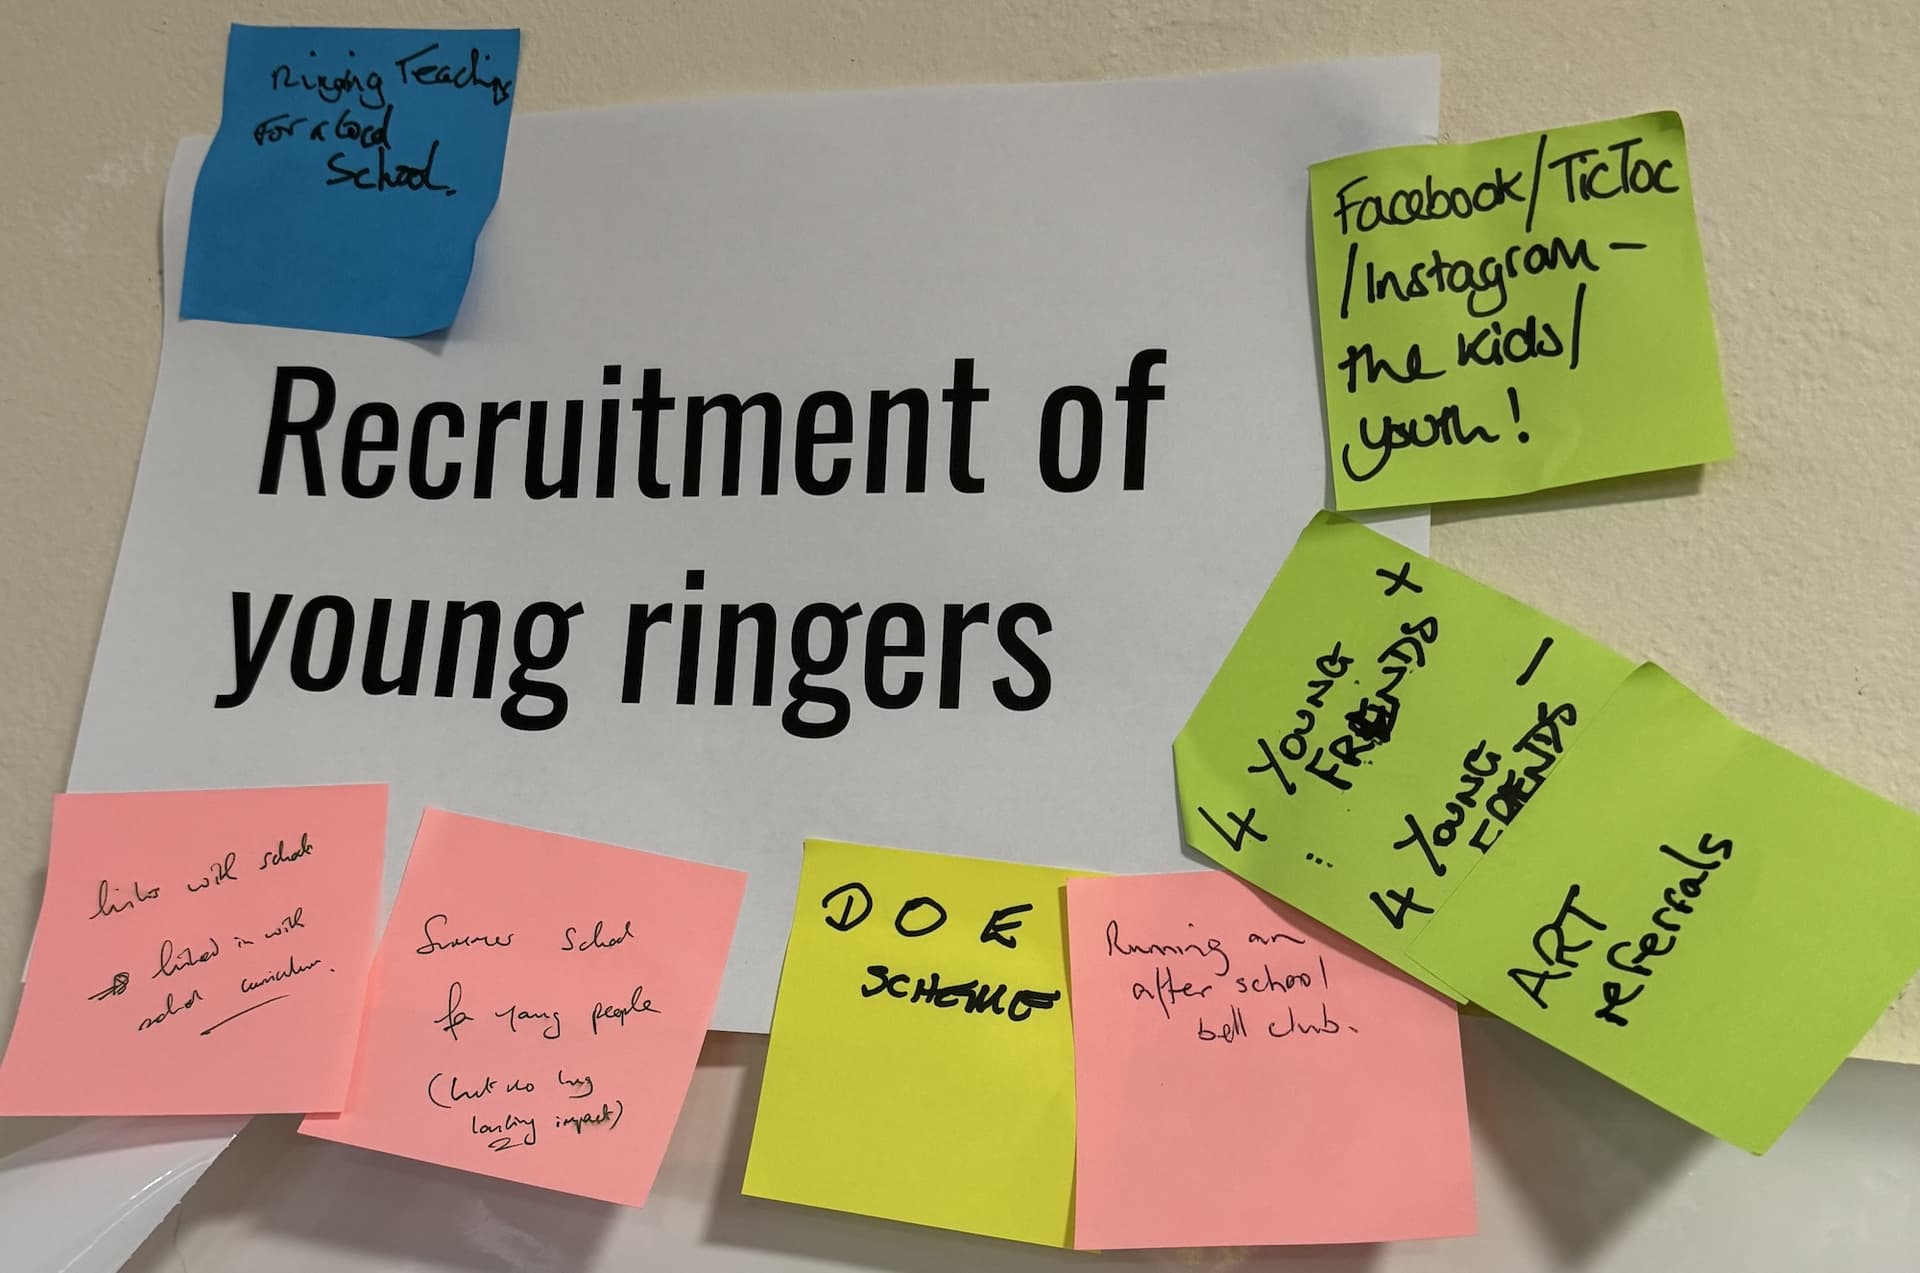 Ringing Teaching
For a local
School.
Facebook/TicToc
/Instagram -
the kids/
youth!
Recruitment of
young ringers
4 YOUNG
FRIENDS X
...
4 YOUNG
FRIENDS -
ART
referrals
links with schools
linked in with
school curriculum.
Summer School
for young people
(but no long
lasting impact)
D O E
SCHEME
Running an
after school
bell club.